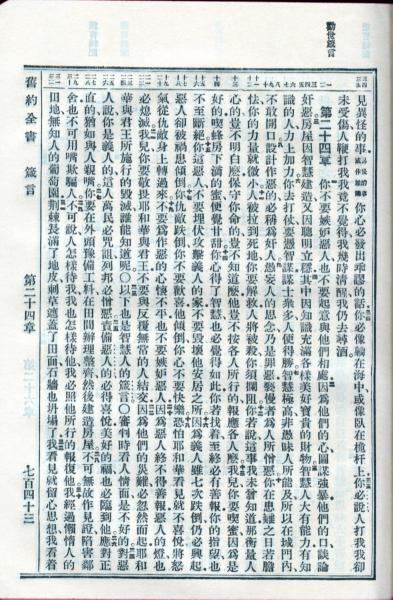 勸世箴言
見異怪的事你心必發出乖謬的話你必像躺在海中或像臥在桅杆上你必說人打我我卻
未受傷人鞭打我我竟不覺得我幾時清醒我仍去尋酒
第二十四章 你不要嫉妒惡人也不要起意與他們相處因為他們的心圖謀強暴他們的口談論
奸惡房屋因智慧建造又因聰明立穩其中因知識充滿各樣美好寶貴的財物智慧人大有能力有知
識的人力上加力你去打仗要憑智謀謀士衆多人便得勝智慧極高非愚昧人所能及所以在城門內
不敢開口設計作惡的必稱為奸人愚妄人的思念乃是罪惡褻慢者為人所憎惡你在患難之日若膽
怯你的力量就微小人被拉到死地你要解救人將被殺你須攔阻你若說這事我未曾知道那衡量人
心的豈不明白麼保守你命的豈不知道麼他豈不按各人所行的報應各人麼我兒你要喫蜜因為是
好的喫蜂房下滴的蜜便覺甘甜你心得了智慧也必覺得如此你若找着至終必有善報你的指望也
不至斷絕你這惡人不要埋伏攻擊義人的家不要毀壞他安居之所因為義人雖七次跌倒仍必興起
惡人卻被禍患傾倒你仇敵跌倒你不要歡喜他傾倒你心不要快樂恐怕耶和華看見就不喜悅將怒
氣從仇敵身上轉過來不要為作惡的心懷不平也不要嫉妒惡人因為惡人終不得善報惡人的燈也
必熄滅我兒你要敬畏耶和華與君王不要與反覆無常的人結交因為他們的災難必忽然而起耶和
華與君王所施行的毀滅誰能知道呢○以下也是智慧人的箴言○審判時看人情面是不好的對惡
人說你是義人的這人萬民必咒詛列邦必憎惡責備惡人的必得喜悅美好的福也必臨到他應對正
直的猶如與人親嘴你要在外頭預備工料在田間辦理整齊然後建造房屋不可無故作見證陷害鄰
舍也不可用嘴欺騙人不可說人怎樣待我我也怎樣待他我必照他所行的報復他我經過懶惰人的
田地無知人的葡萄園荊棘長滿了地皮刺草遮蓋了田面石牆也坍塌了我看見就留心思想我看着
舊約全書 箴言 第二十四章 七百四十三